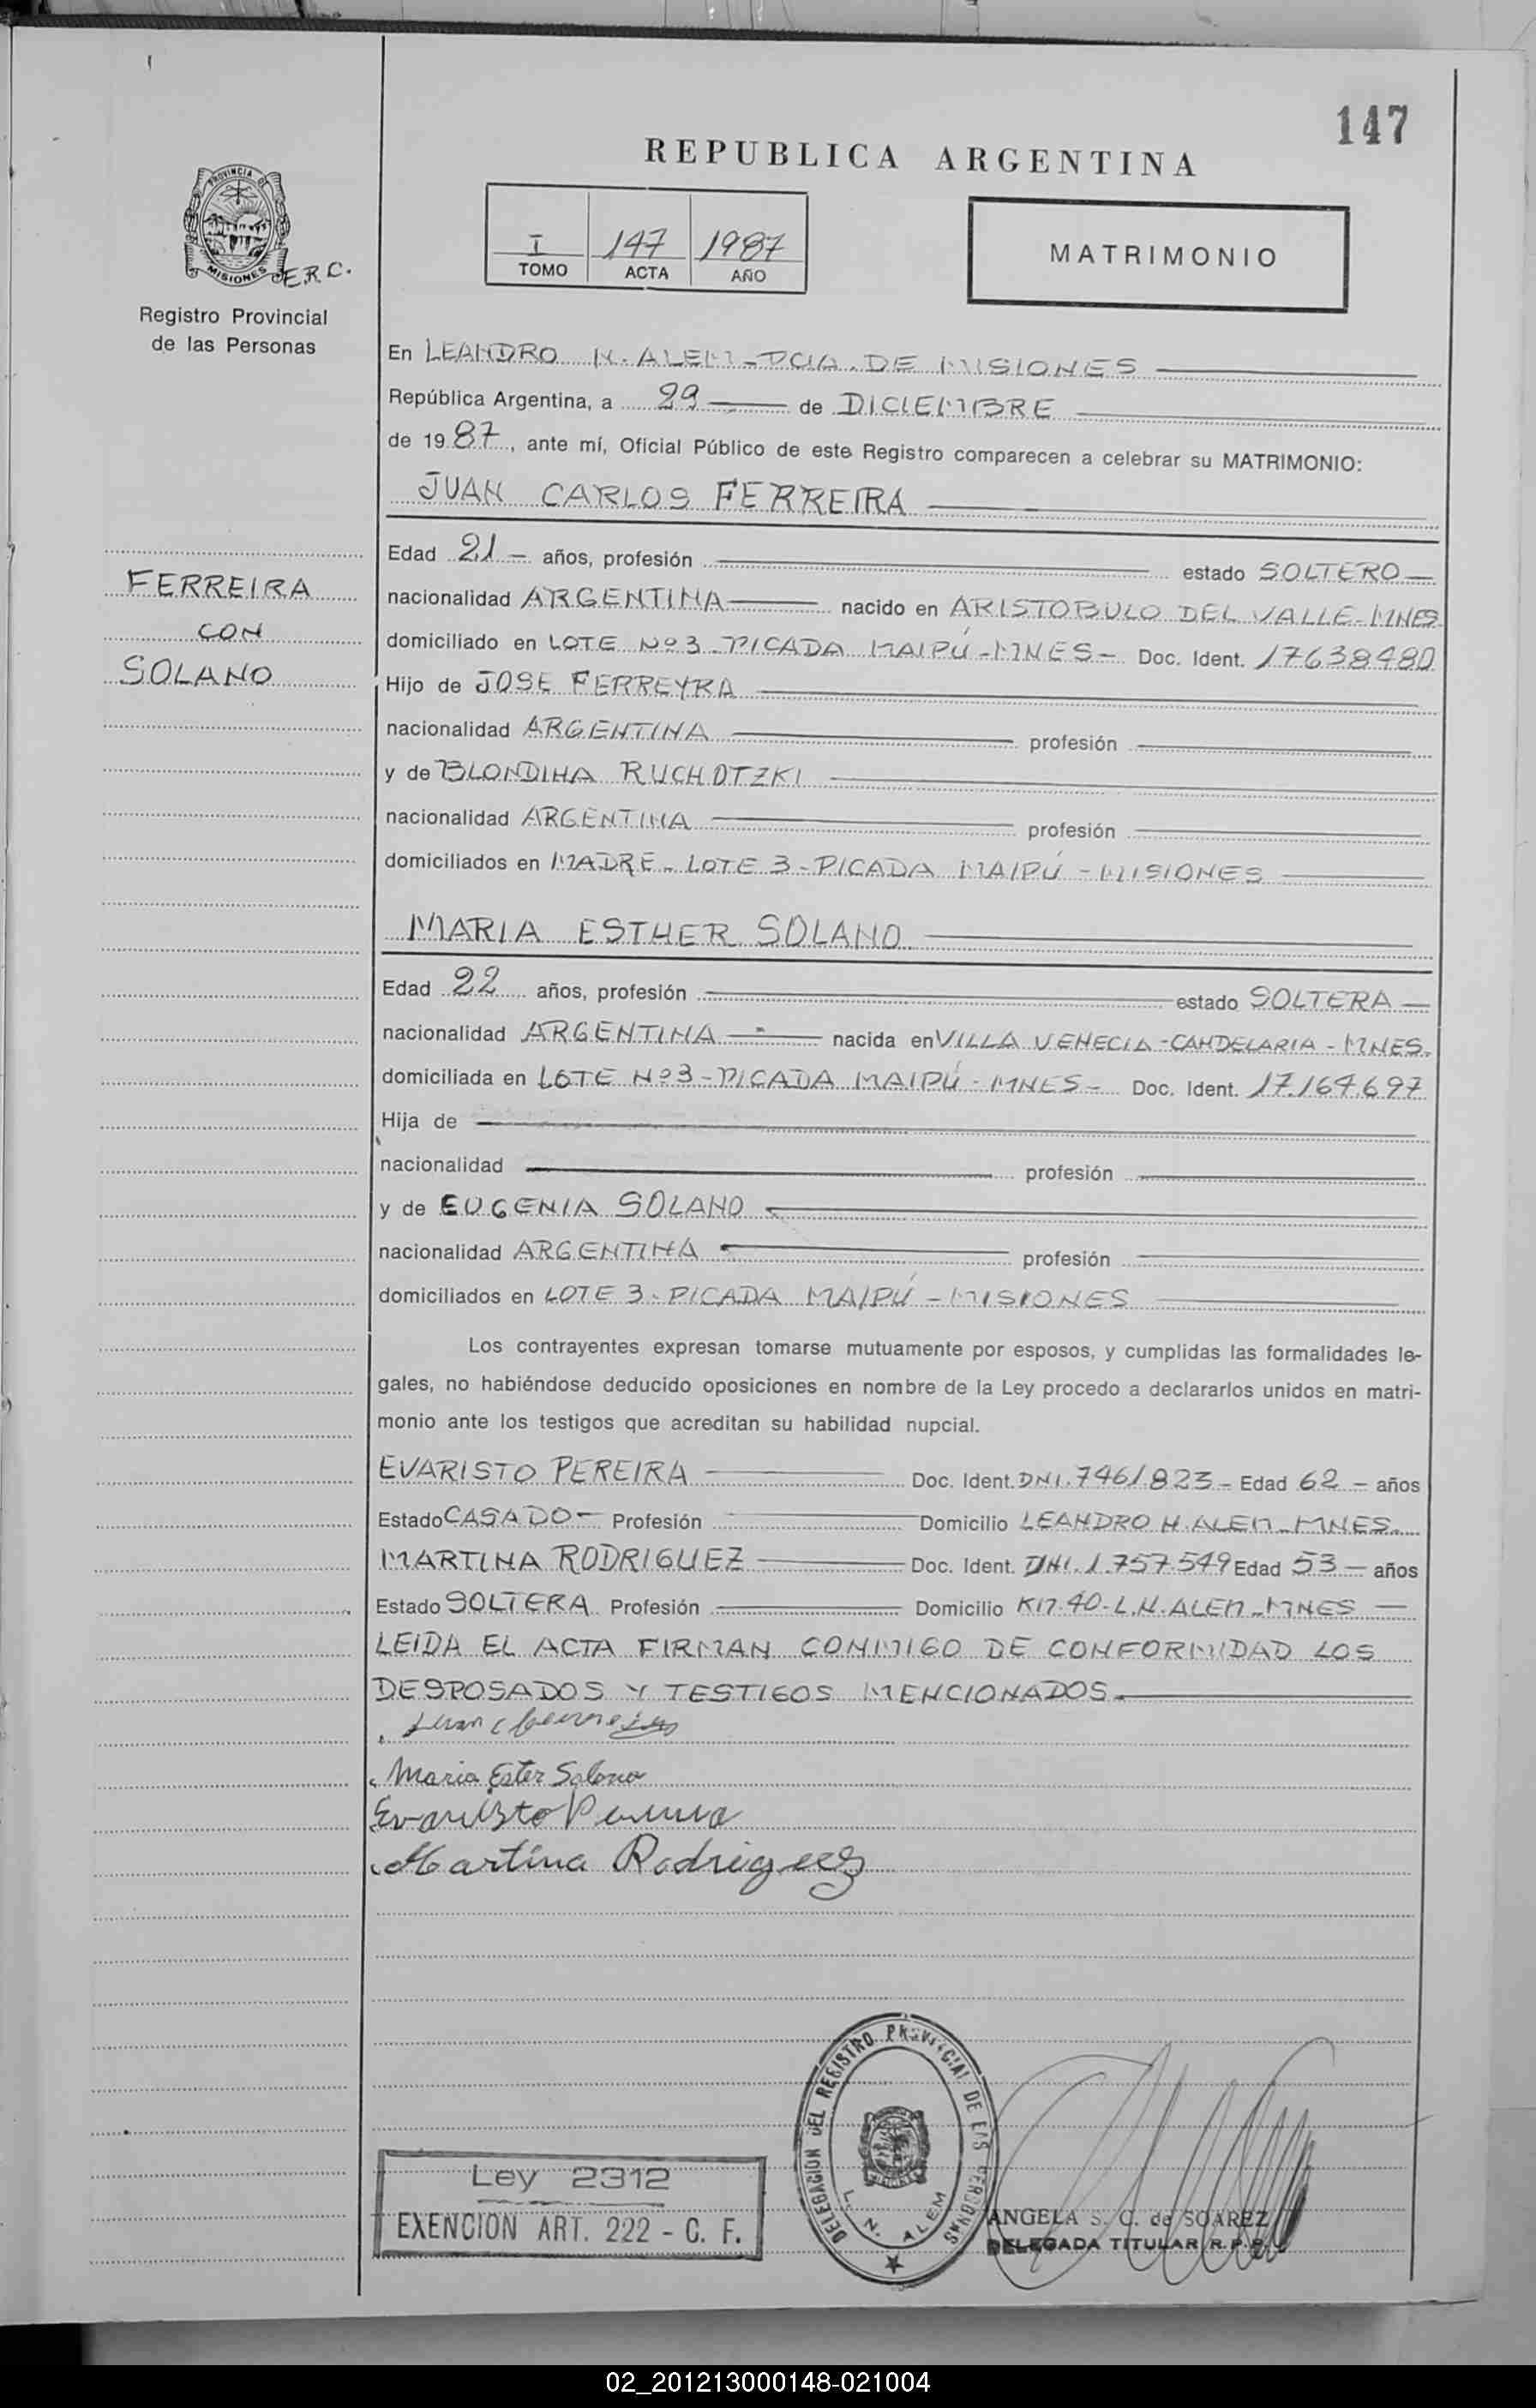 147
REPUBLICA ARGENTINA
PROVINCIA DE
MISIONES
E.R.C.
Registro Provincial
de las Personas
I 147 1987
TOMO ACTA AÑO
MATRIMONIO
En LEANDRO N. ALEM - PCIA. DE MISIONES
República Argentina, a 29 de DICIEMBRE
de 1987, ante mí, Oficial Público de este Registro comparecen a celebrar su MATRIMONIO:
JUAN CARLOS FERREIRA
FERREIRA
CON
SOLANO
Edad 21 - años, profesión estado SOLTERO
nacionalidad ARGENTINA nacido en ARISTOBULO DEL VALLE - MNES
domiciliado en LOTE Nº 3 - PICADA MAIPÚ - MNES - Doc. Ident. 17638480
Hijo de JOSE FERREYRA
nacionalidad ARGENTINA profesión
y de BLONDINA RUCHOTZKI
nacionalidad ARGENTINA profesión
domiciliados en MADRE - LOTE 3 - PICADA MAIPÚ - MISIONES
MARIA ESTHER SOLANO
Edad 22 años, profesión estado SOLTERA
nacionalidad ARGENTINA nacida en VILLA VENECIA - CANDELARIA - MNES.
domiciliada en LOTE Nº 3 - PICADA MAIPÚ - MNES - Doc. Ident. 17.164.697
Hija de
nacionalidad profesión
y de EUGENIA SOLANO
nacionalidad ARGENTINA profesión
domiciliados en LOTE 3 - PICADA MAIPÚ - MISIONES
Los contrayentes expresan tomarse mutuamente por esposos, y cumplidas las formalidades le-
gales, no habiéndose deducido oposiciones en nombre de la Ley procedo a declararlos unidos en matri-
monio ante los testigos que acreditan su habilidad nupcial.
EVARISTO PEREIRA Doc. Ident. DNI. 7461.823 - Edad 62 - años
Estado CASADO - Profesión Domicilio LEANDRO N. ALEM - MNES.
MARTINA RODRIGUEZ Doc. Ident. DNI. 1.757.549 Edad 53 - años
Estado SOLTERA Profesión Domicilio KM. 40 - L.N. ALEM - MNES
LEIDA EL ACTA FIRMAN CONMIGO DE CONFORMIDAD LOS
DESPOSADOS Y TESTIGOS MENCIONADOS.
Maria Ester Solano
Evaristo Pereira
Martina Rodriguez
DELEGACION DEL REGISTRO PROVINCIAL DE LAS PERSONAS
L. N. ALEM
Ley 2312
EXENCION ART. 222 - C. F.
ANGELA S. C. de SOAREZ
DELEGADA TITULAR R. P. P.
02_201213000148-021004